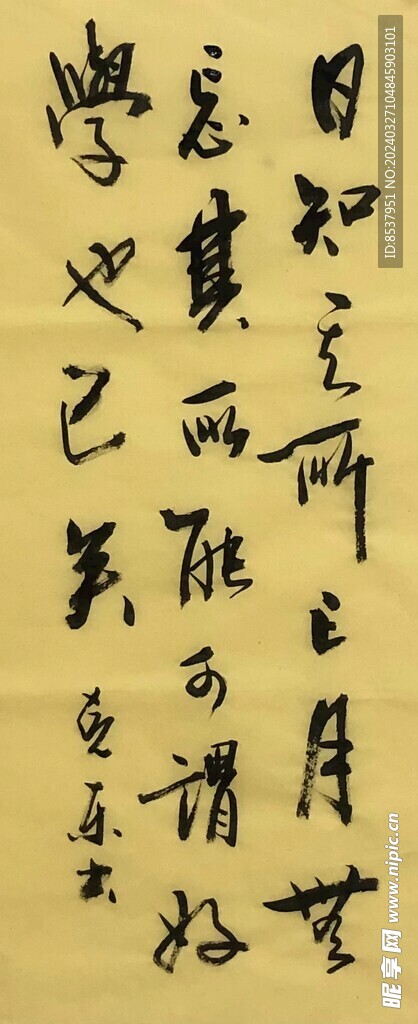 日知其所亡月無
忘其所能可謂好
學也已矣
克东书
ID:8537951 NO:20240327104845903101
www.nipic.cn
昵享网